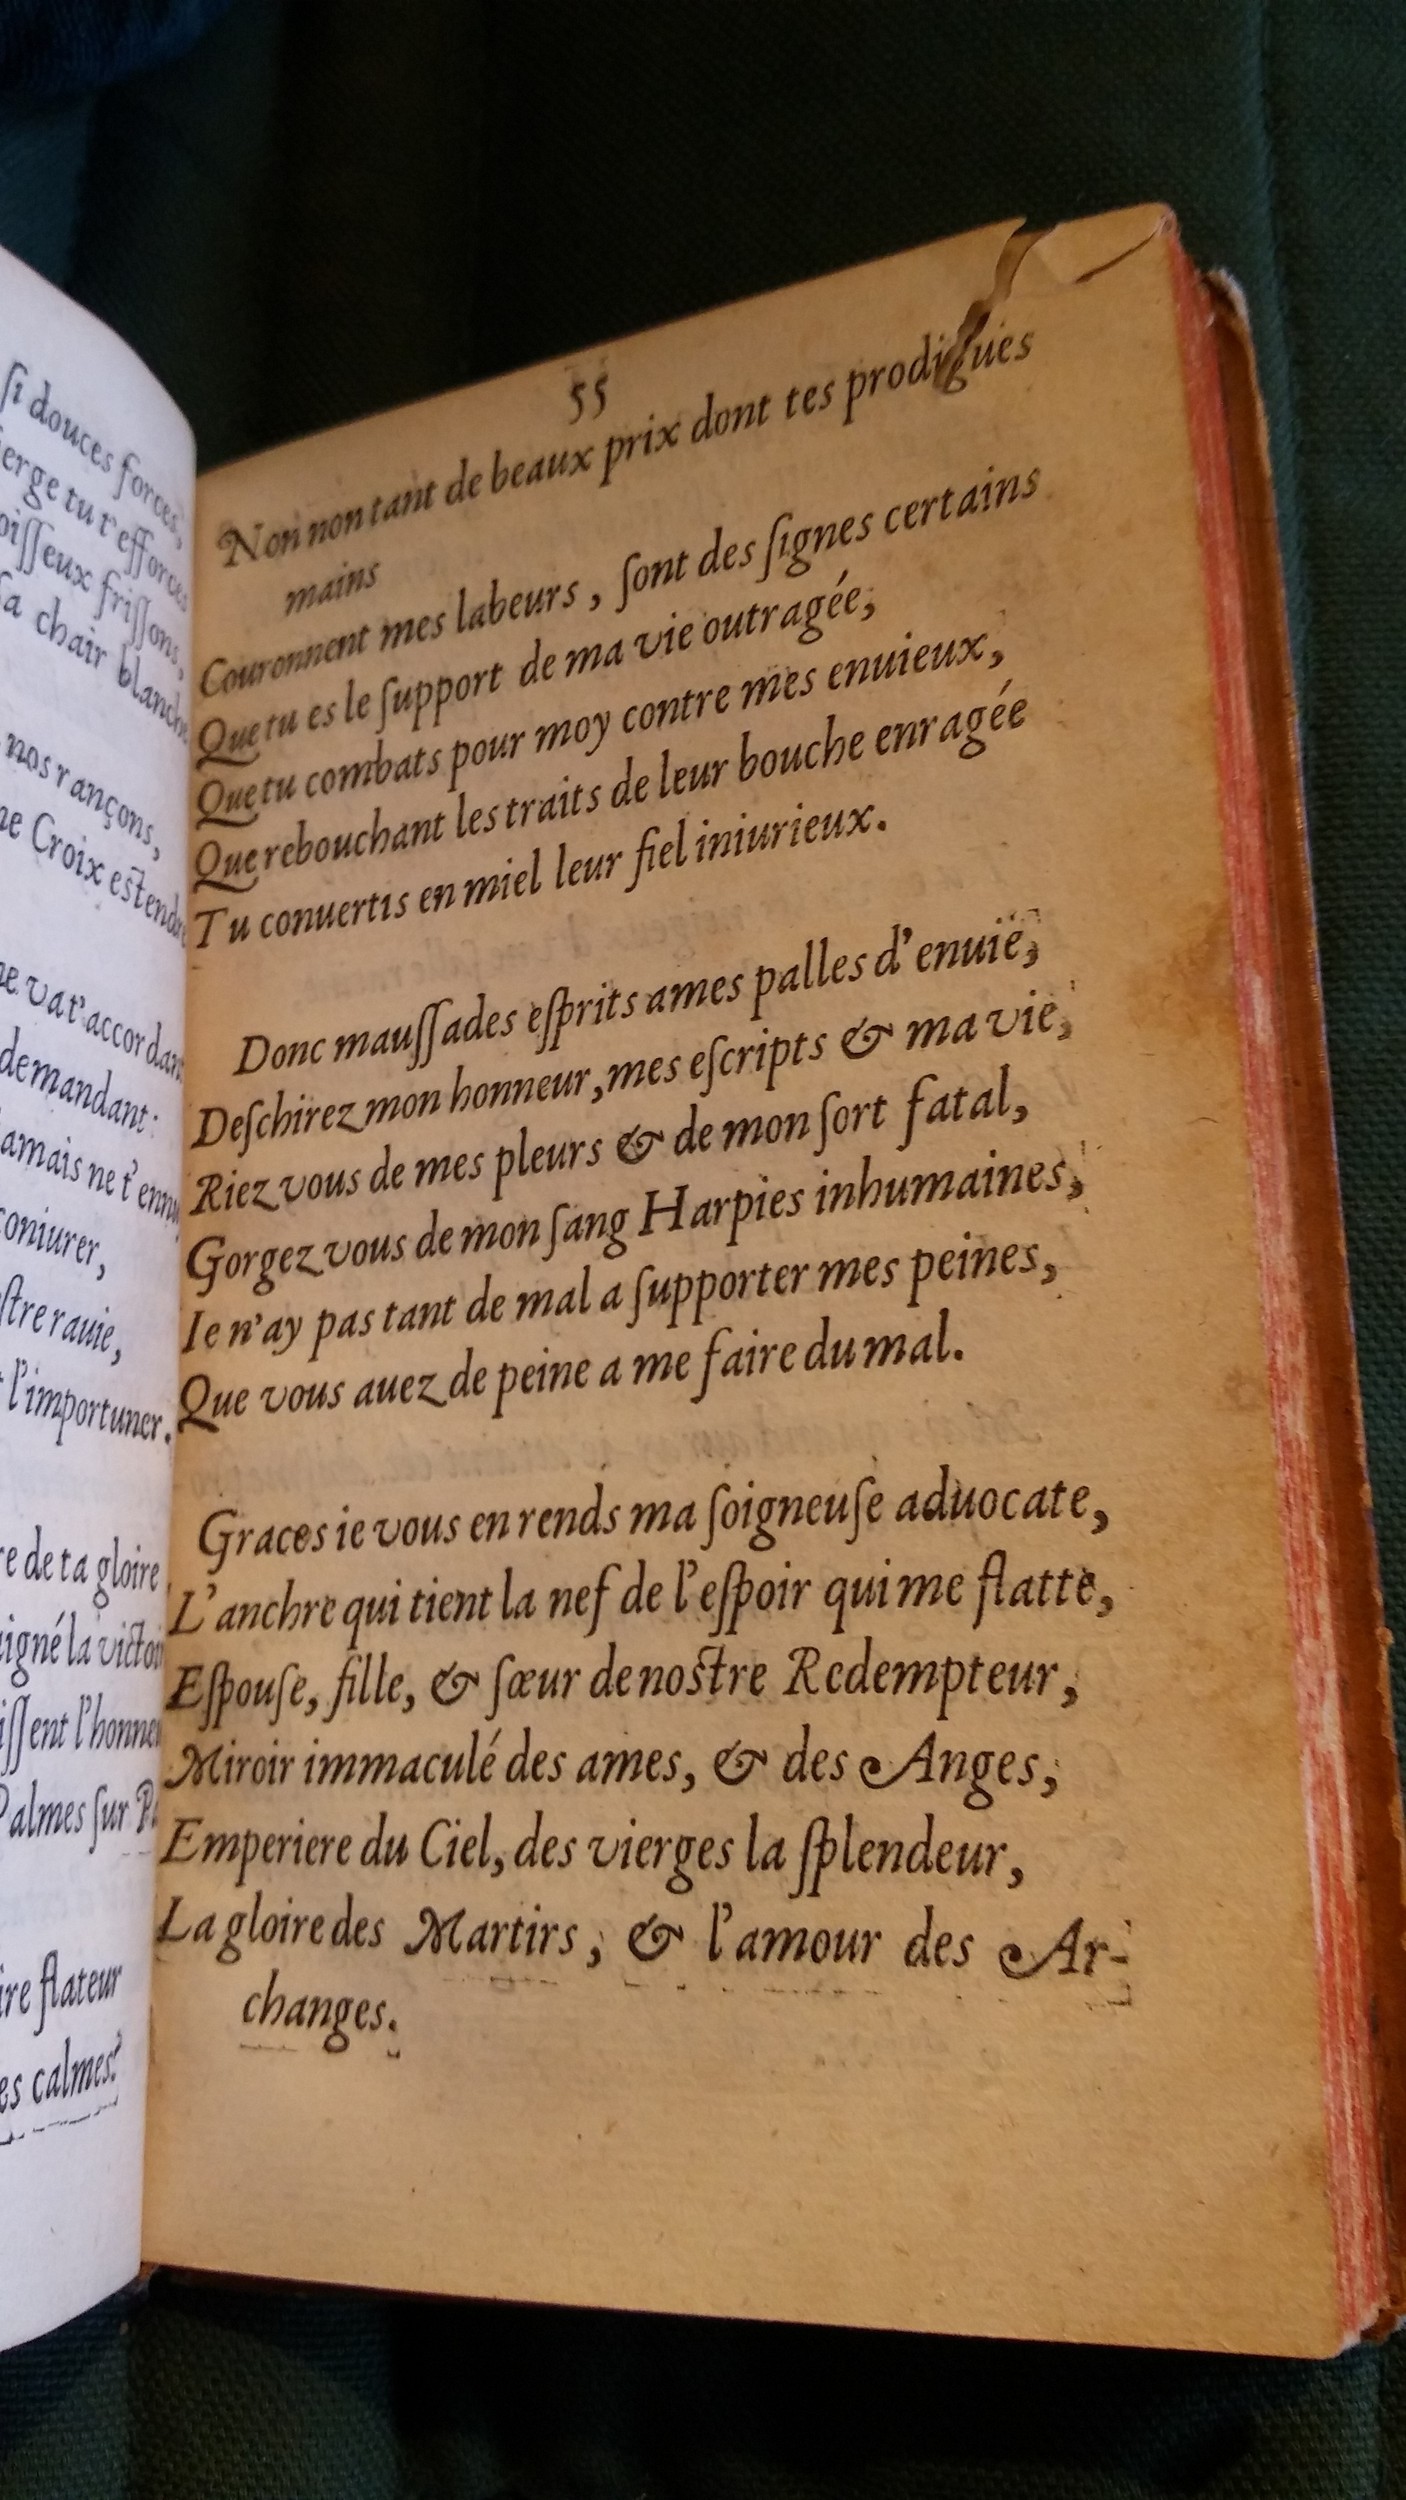 ſi douces forces,
erge tu t'efforces
oiſſeux friſſons,
ſa chair blanche
nos rançons,
ne Croix estendre
ne va t'accordant
demandant:
amais ne t'ennuy
coniurer,
eſtre rauie,
l'importuner.
re de ta gloire,
igné la victoi
iſſent l'honne
Palmes ſur Pa
ire flateur
es calmes?
55
Non non tant de beaux prix dont tes prodigues
mains
Couronnent mes labeurs, ſont des ſignes certains
Que tu es le ſupport de ma vie outragée,
Que tu combats pour moy contre mes enuieux,
Que rebouchant les traits de leur bouche enragée
Tu conuertis en miel leur fiel iniurieux.
Donc mauſſades eſprits ames palles d'enuië,
Deſchirez mon honneur, mes eſcripts & ma vie,
Riez vous de mes pleurs & de mon ſort fatal,
Gorgez vous de mon ſang Harpies inhumaines,
Ie n'ay pas tant de mal a ſupporter mes peines,
Que vous auez de peine a me faire du mal.
Graces ie vous en rends ma ſoigneuſe aduocate,
L'anchre qui tient la nef de l'eſpoir qui me flatte,
Eſpouſe, fille, & ſœur de nostre Redempteur,
Miroir immaculé des ames, & des Anges,
Emperiere du Ciel, des vierges la ſplendeur,
La gloire des Martirs, & l'amour des Ar-
changes.